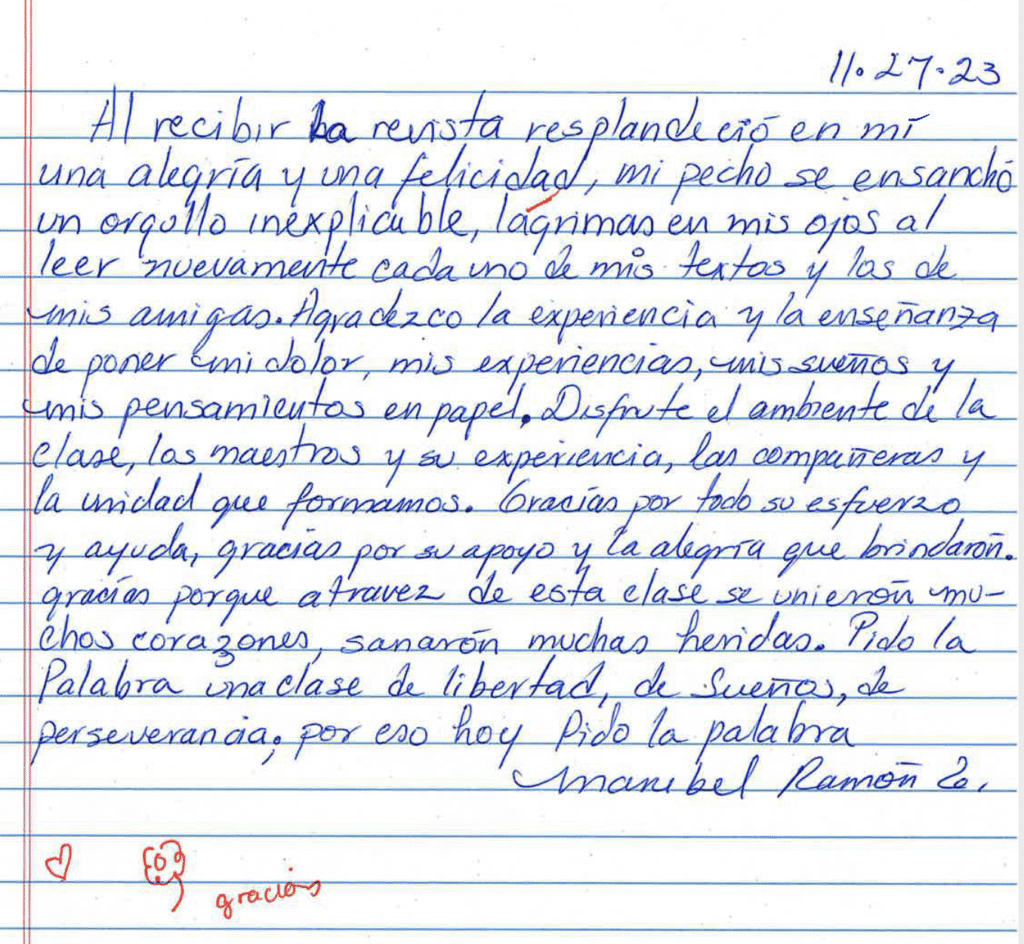 11.27.23
Al recibir la revista resplandeció en mí
una alegría y una felicidad, mi pecho se ensanchó
un orgullo inexplicable, lágrimas en mis ojos al
leer nuevamente cada uno de mis textos y las de
mis amigas. Agradezco la experiencia y la enseñanza
de poner mi dolor, mis experiencias, mis sueños y
mis pensamientos en papel. Disfrute el ambiente de la
clase, los maestros y su experiencia, las compañeras y
la unidad que formamos. Gracias por todo su esfuerzo
y ayuda, gracias por su apoyo y la alegría que brindarón.
gracias porque atravez de esta clase se unierón mu-
chos corazones, sanarón muchas heridas. Pido la
Palabra una clase de libertad, de Sueños, de
perseverancia; por eso hoy Pido la palabra
Maribel Ramón
gracias